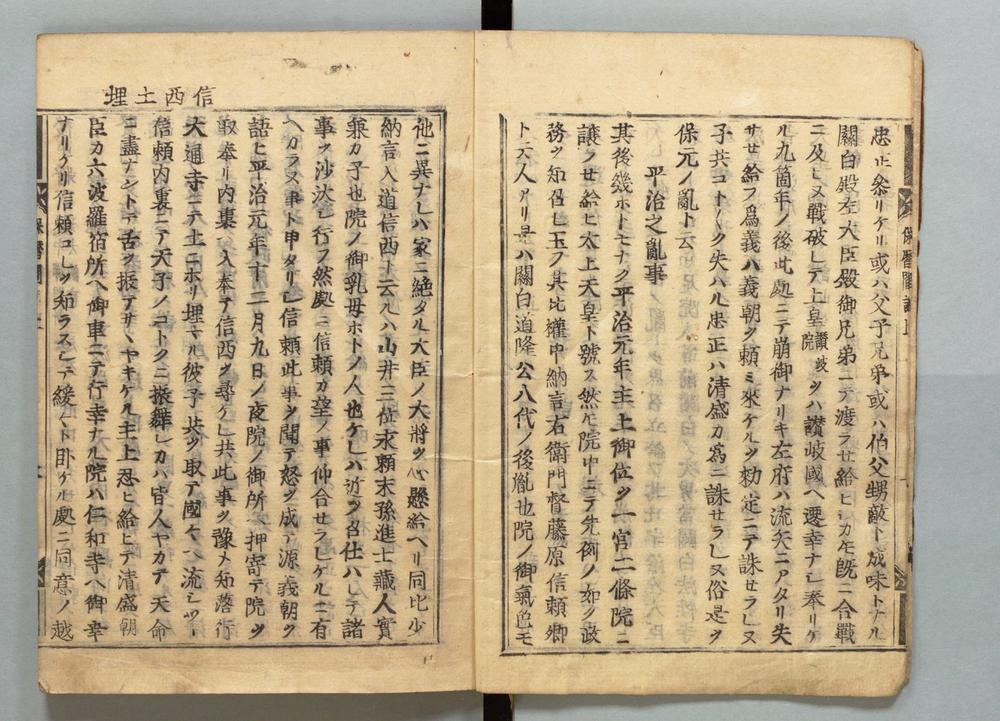 忠正参リケリ或ハ父子兄弟或ハ伯父甥敵ト成味トナル
關白殿左大臣殿御兄弟ニテ渡ラセ給ヒシカ𪜈既ニ合戰
ニ及シ又戰破シテ上皇讃岐院ヲハ讃岐國ヘ遷幸ナシ奉リケ
ル九箇年ノ後此処ニテ崩御ナリキ左府ハ流矢ニアタリ失
サセ給フ爲義ハ義朝ヲ頼ミ來ケルヲ勅定ニテ誅セラレヌ
子共コト〱ク失ハル忠正ハ清盛カ爲ニ誅セラレヌ俗是ヲ
保元ノ亂ト云
平治之亂事
其後幾ホトモナク平治元年主上御位ヲ一宮二條院ニ
譲ラセ給ヒ太上天皇ト號ス然𪜈院中ニテ先例ノ如ク政
務ヲ知召シ玉フ其比權中納言右衛門督藤原信頼卿
ト云人アリ是ハ關白道隆公八代ノ後胤也院ノ御氣色モ
他ニ異ナレハ家ニ絶タル大臣ノ大將ヲ心懸給ヘリ同比少
納言入道信西ト云ルハ山井三位永頼末孫進士藏人實
兼カ子也院ノ御乳母ホトノ人也ケレハ近ヲ召仕ハレテ諸
事ヲ沙汰シ行フ然処ニ信頼カ望ノ事仰合セラレケルニ有
ヘカラス事ト申タリシ信頼此事ヲ聞テ怒ヲ成テ源義朝ヲ
語ヒ平治元年十二月九日ノ夜院ノ御所ヘ押寄テ院ヲ
取奉リ内裏ヘ入奉テ信西ヲ尋ケレ共此事ヲ豫メ知落行
大通寺ニテ土ニホリ埋マル彼子共ヲ取テ國々ヘ流シツヽ
信頼内裏ニテ天子ノコトクニ振舞シカハ皆人ヤカテ天命
ニ盡ナントテ舌ヲ振テサヽヤキケル主上忍ヒ給ヒテ清盛朝
臣カ六波羅宿所ヘ御車ニテ行幸ナル院ハ仁和寺ヘ御幸
ナリケリ信頼コレヲ知ラスシテ緩々ト臥ケル処ニ同意ノ越
信西土埋